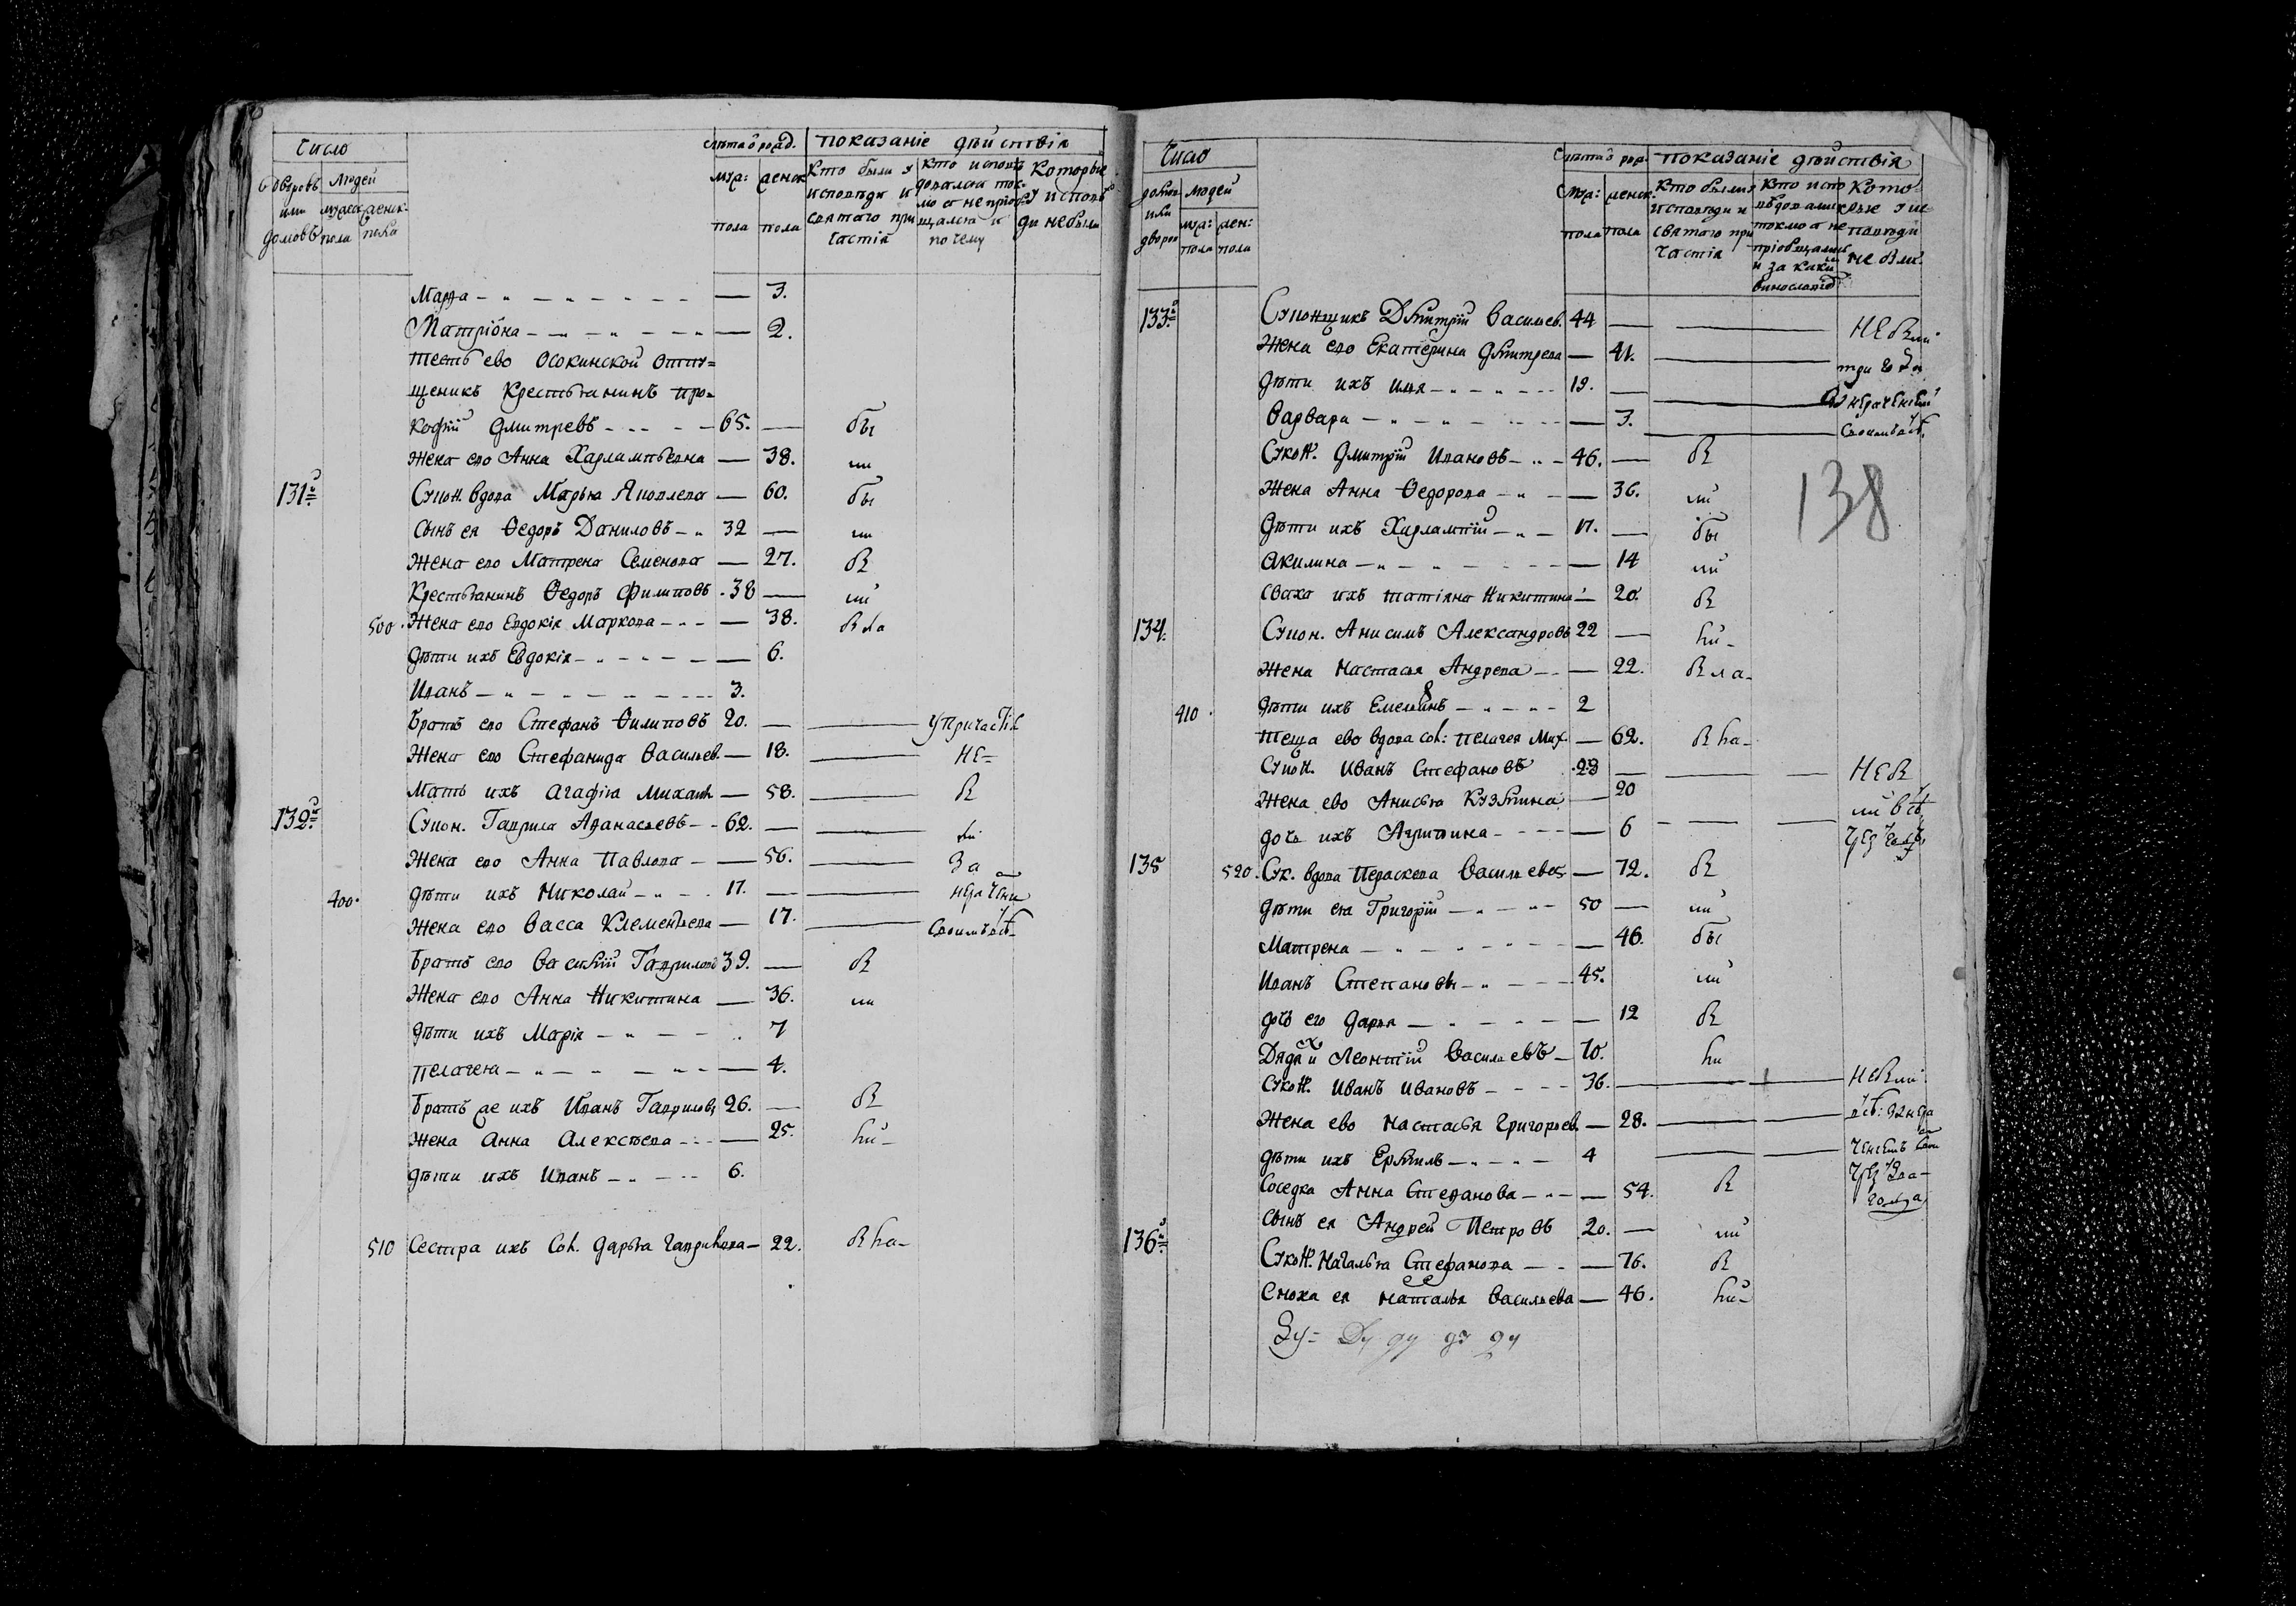 Число
показаніе дѣйствія
дворовъ
Людей
или
домовъ
пола
муж:
пола
женск
пола
Кто были у
исповѣди и
святаго при
частія
почему
Которые
у исповѣ
ди небыли
Марѳа 3.
Матріона 2.
тесть ево Осокинской отпу=
щеникъ Крестьянинъ про=
кофій Дмитревъ 65. бы
жена ево Анна Харлампьевна 38. ли
131й Сукон вдова Марья Яковлева 60. бы
сынъ ея Ѳедоръ Даниловъ 32 ли
жена ево Матрена Семенова 27. б
Крестьянинъ Ѳедоръ Филиповъ 38 ли
500 Жена ево Евдокія Маркова 38. была
дѣти ихъ Евдокія 6.
Иванъ 3.
братъ ево Стефанъ Филиповъ 20. у причастія
Жена ево Стефанида Васильев. 18. не=
Мать ихъ Агафія Михаил 58. б
132й Сукон. Гаврила Аѳанасьевъ 62. ли
жена ево Анна Павлова 56. за
400 дѣти ихъ Николай 17. нераченіем
жена ево Васса Клементьева 17. своимъ
братъ ево Василій Гаврилов 39. б
Жена ево Анна Никитина 36. ли
дѣти ихъ Марія 7
пелагея 4.
братъ же ихъ Иванъ Гаврилов 26. б
жена Анна Алексѣева 25. ли
дѣти ихъ Иванъ 6.
510 Сестра ихъ Сол. Дарья Гаврилова 22. была
Число
показаніе дѣйствія
людей
или
дворов
муж:
пола
жен:
пола
Муж:
пола
женск.
пола
Кто были у
исповѣди и
святаго при
частія
Кто испо
токмо а не
пріобщались
и за каким
винословіем
Кото
рые у ис
повѣди
не были
133й Суконщикъ Дмитрій Васильев. 44 небыли
Жена ево Екатерина Дмитрева 41. три года
дѣти ихъ Илья 19. за нераченіем
Варвара 3. своимъ
138
Сукон. Дмитрій Ивановъ 46. б
Жена Анна Ѳедорова 36. ли
дѣти ихъ Харлампій 17. бы
Акилина 14 ли
сваха ихъ татіяна Никитина 20. б
134. Сукон. Анисимъ Александровъ 22 ли
жена Настасья Андрева 22. была
410 дѣти ихъ Емельянъ 2
теща ево вдова сол: пелагея Мих. 62. была
Сукон. Иванъ Стефановъ 28 не б
жена ево Анисья Кузмина 20 ли
дочь ихъ Агрипина 6
135 520 Сук. вдова Пераскева Васильева 72. б
дѣти ея Григорій 50 ли
Матрена 46. бы
Иванъ Степановъ 45. ли
дочь его Дарья 12 б
Дядя их Леонтій Васильевъ 70. ли
Сукон. Иванъ Ивановъ 36. небыли
Жена ево Настасья Григорьев. 28.
дѣти ихъ Ермилъ 4
Соседка Анна Степанова 54. б
сынъ ея Андрей Петровъ 20. ли
136й Сукон. Наталья Стефанова 76. б
Сноха ея Наталья Васильева 46. ли